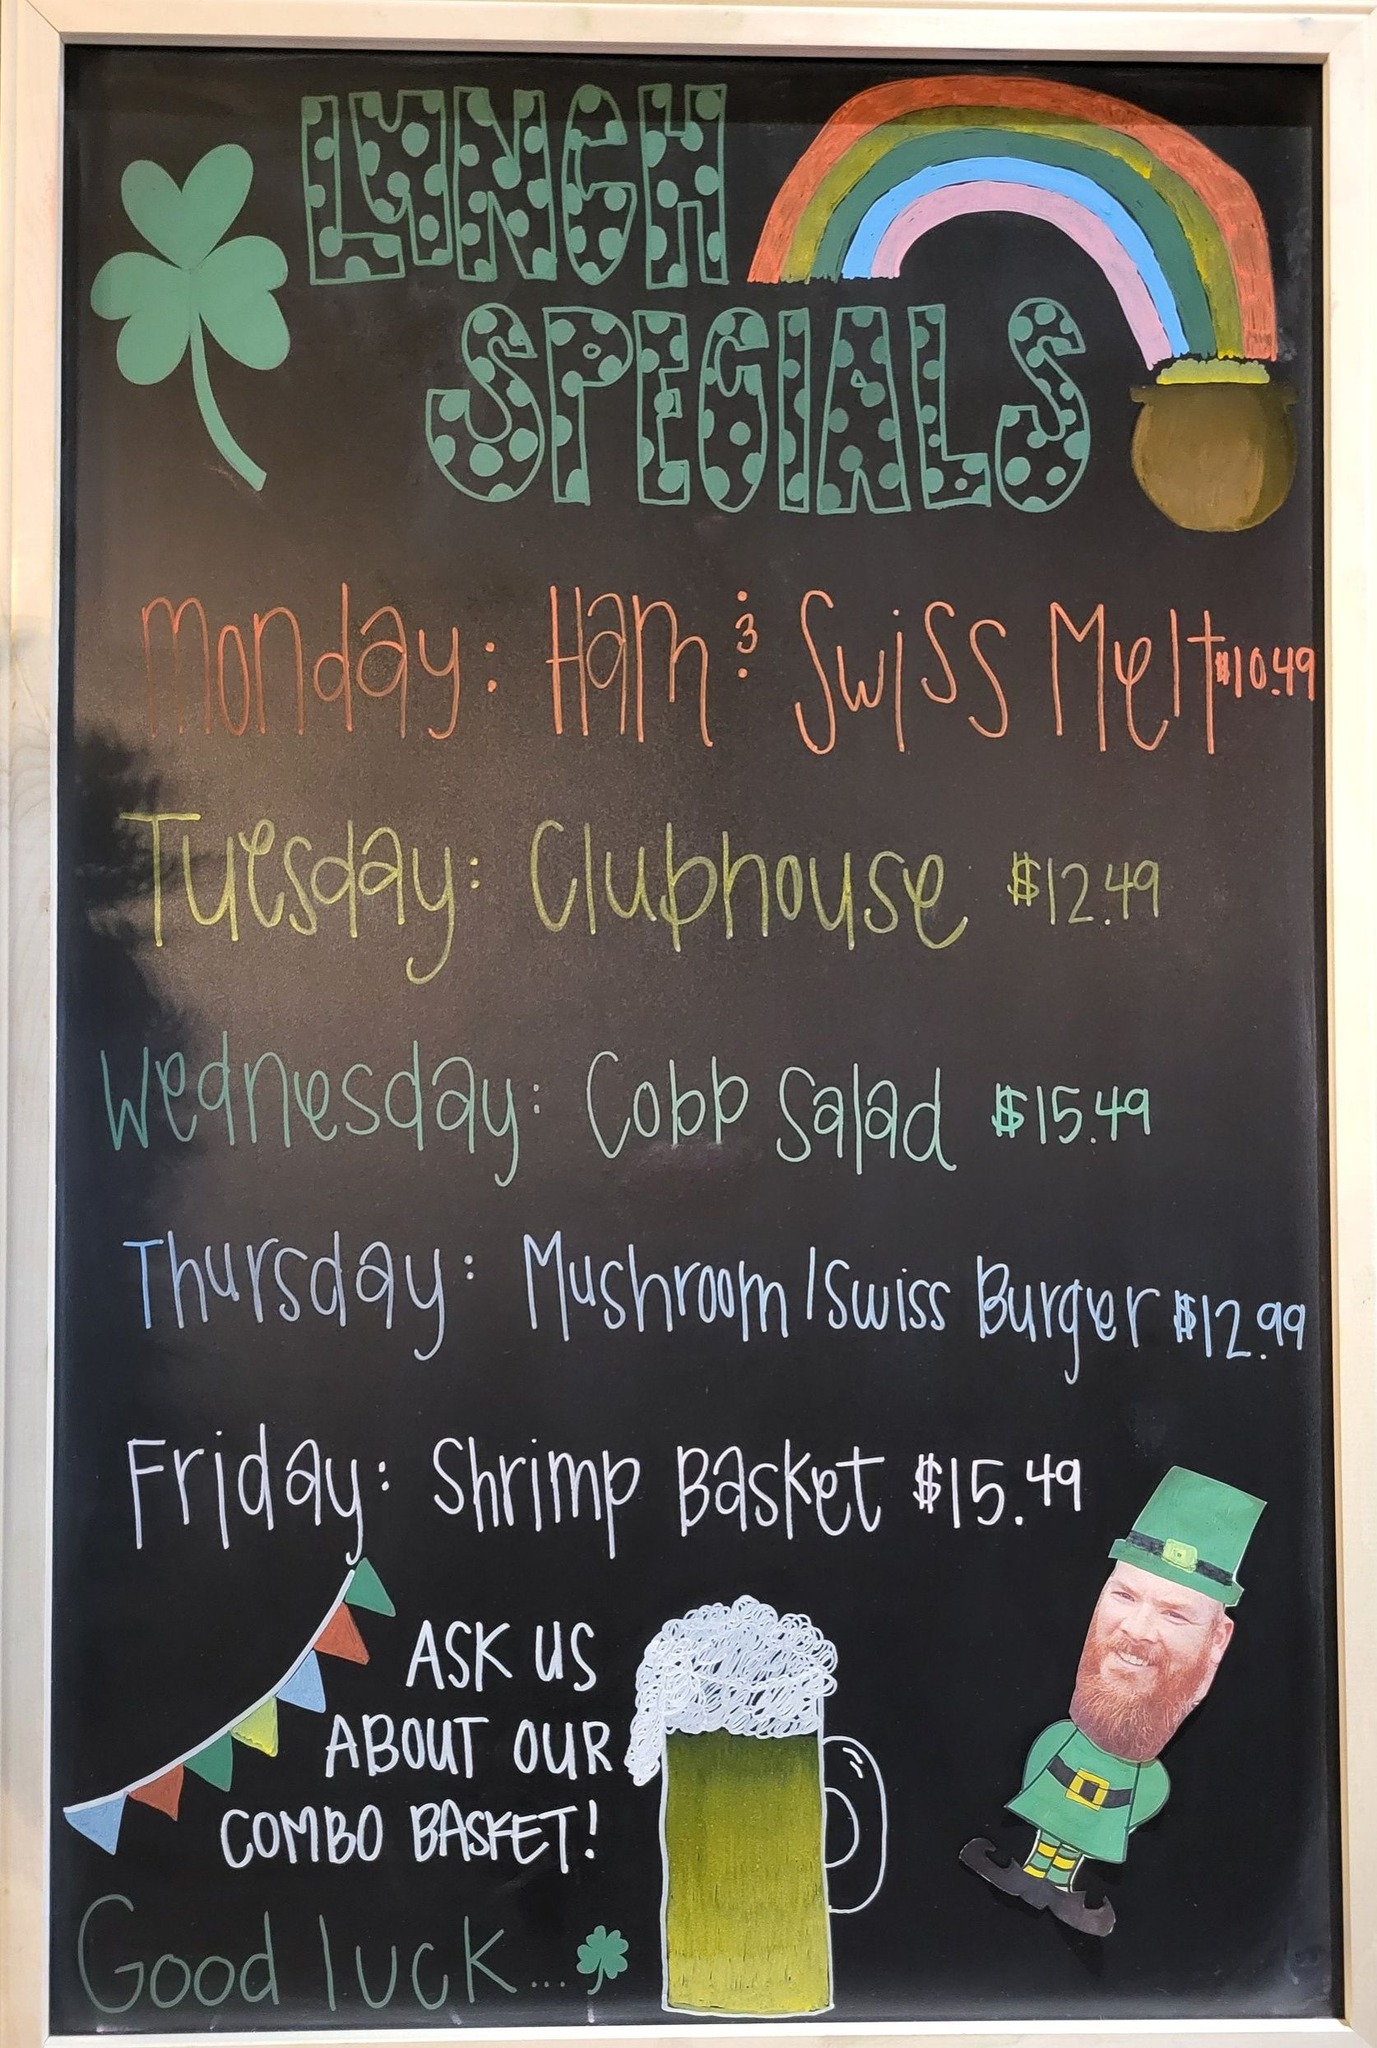 LUNCH
SPECIALS
Monday: Ham & Swiss Melt $10.49
Tuesday: Clubhouse $12.49
Wednesday: Cobb Salad $15.49
Thursday: Mushroom/Swiss Burger $12.99
Friday: Shrimp Basket $15.49
ASK US
ABOUT OUR
COMBO BASKET!
Good luck....